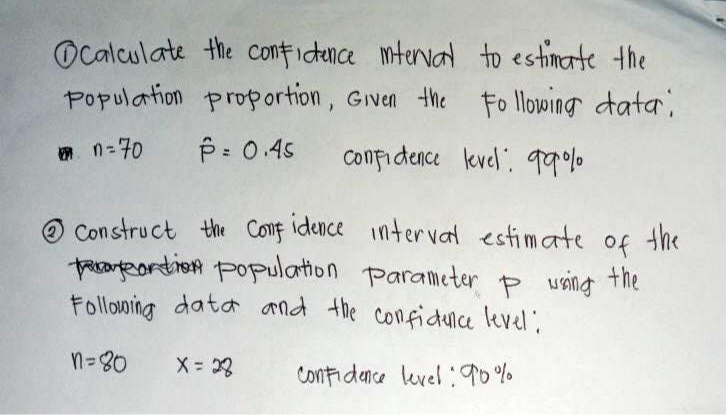 ① Calculate the confidence interval to estimate the
population proportion, Given the Following data:
n=70 p̂ = 0.45 confidence level: 99%
② Construct the Confidence interval estimate of the
population parameter p using the
Following data and the confidence level:
n=80 X = 28 confidence level: 90%